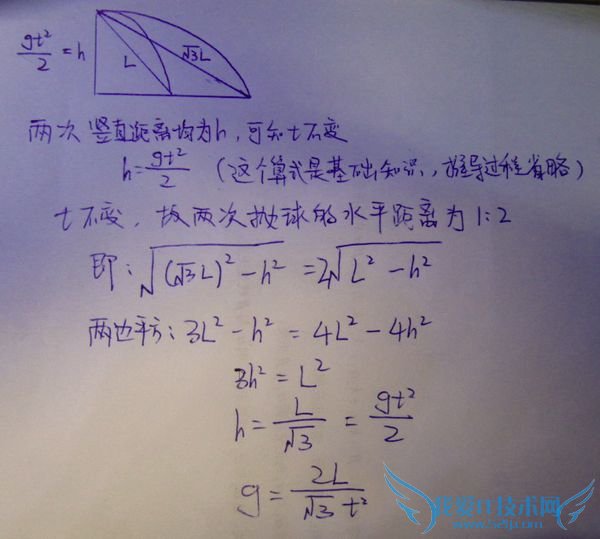 gt²/2 = h
L
√3L
两次竖直距离均为h,可知t不变
h = gt²/2 (这个算式是基础知识,推导过程省略)
t不变,故两次抛球的水平距离为1:2
即:√((√3L)² - h²) = 2√(L² - h²)
两边平方:3L² - h² = 4L² - 4h²
3h² = L²
h = L/√3 = gt²/2
g = 2L/(√3 t²)
我爱IT技术网
www.52ij.com